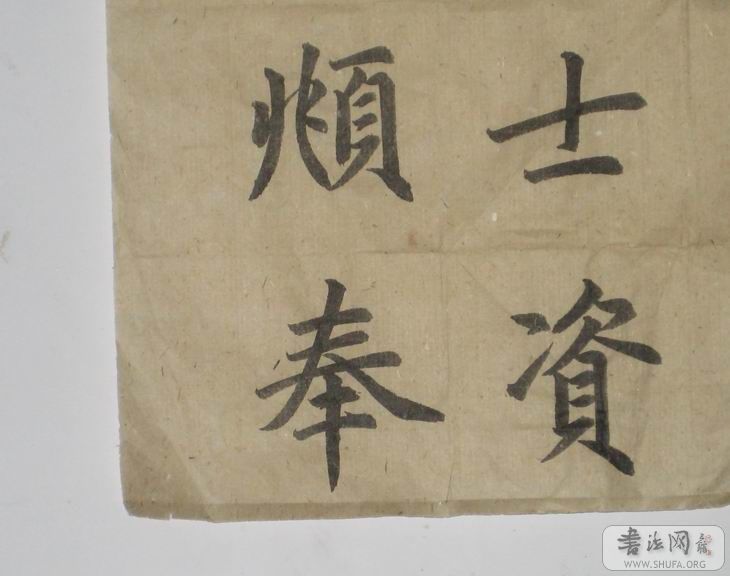 士資
頫奉
書法网
WWW.SHUFA.ORG